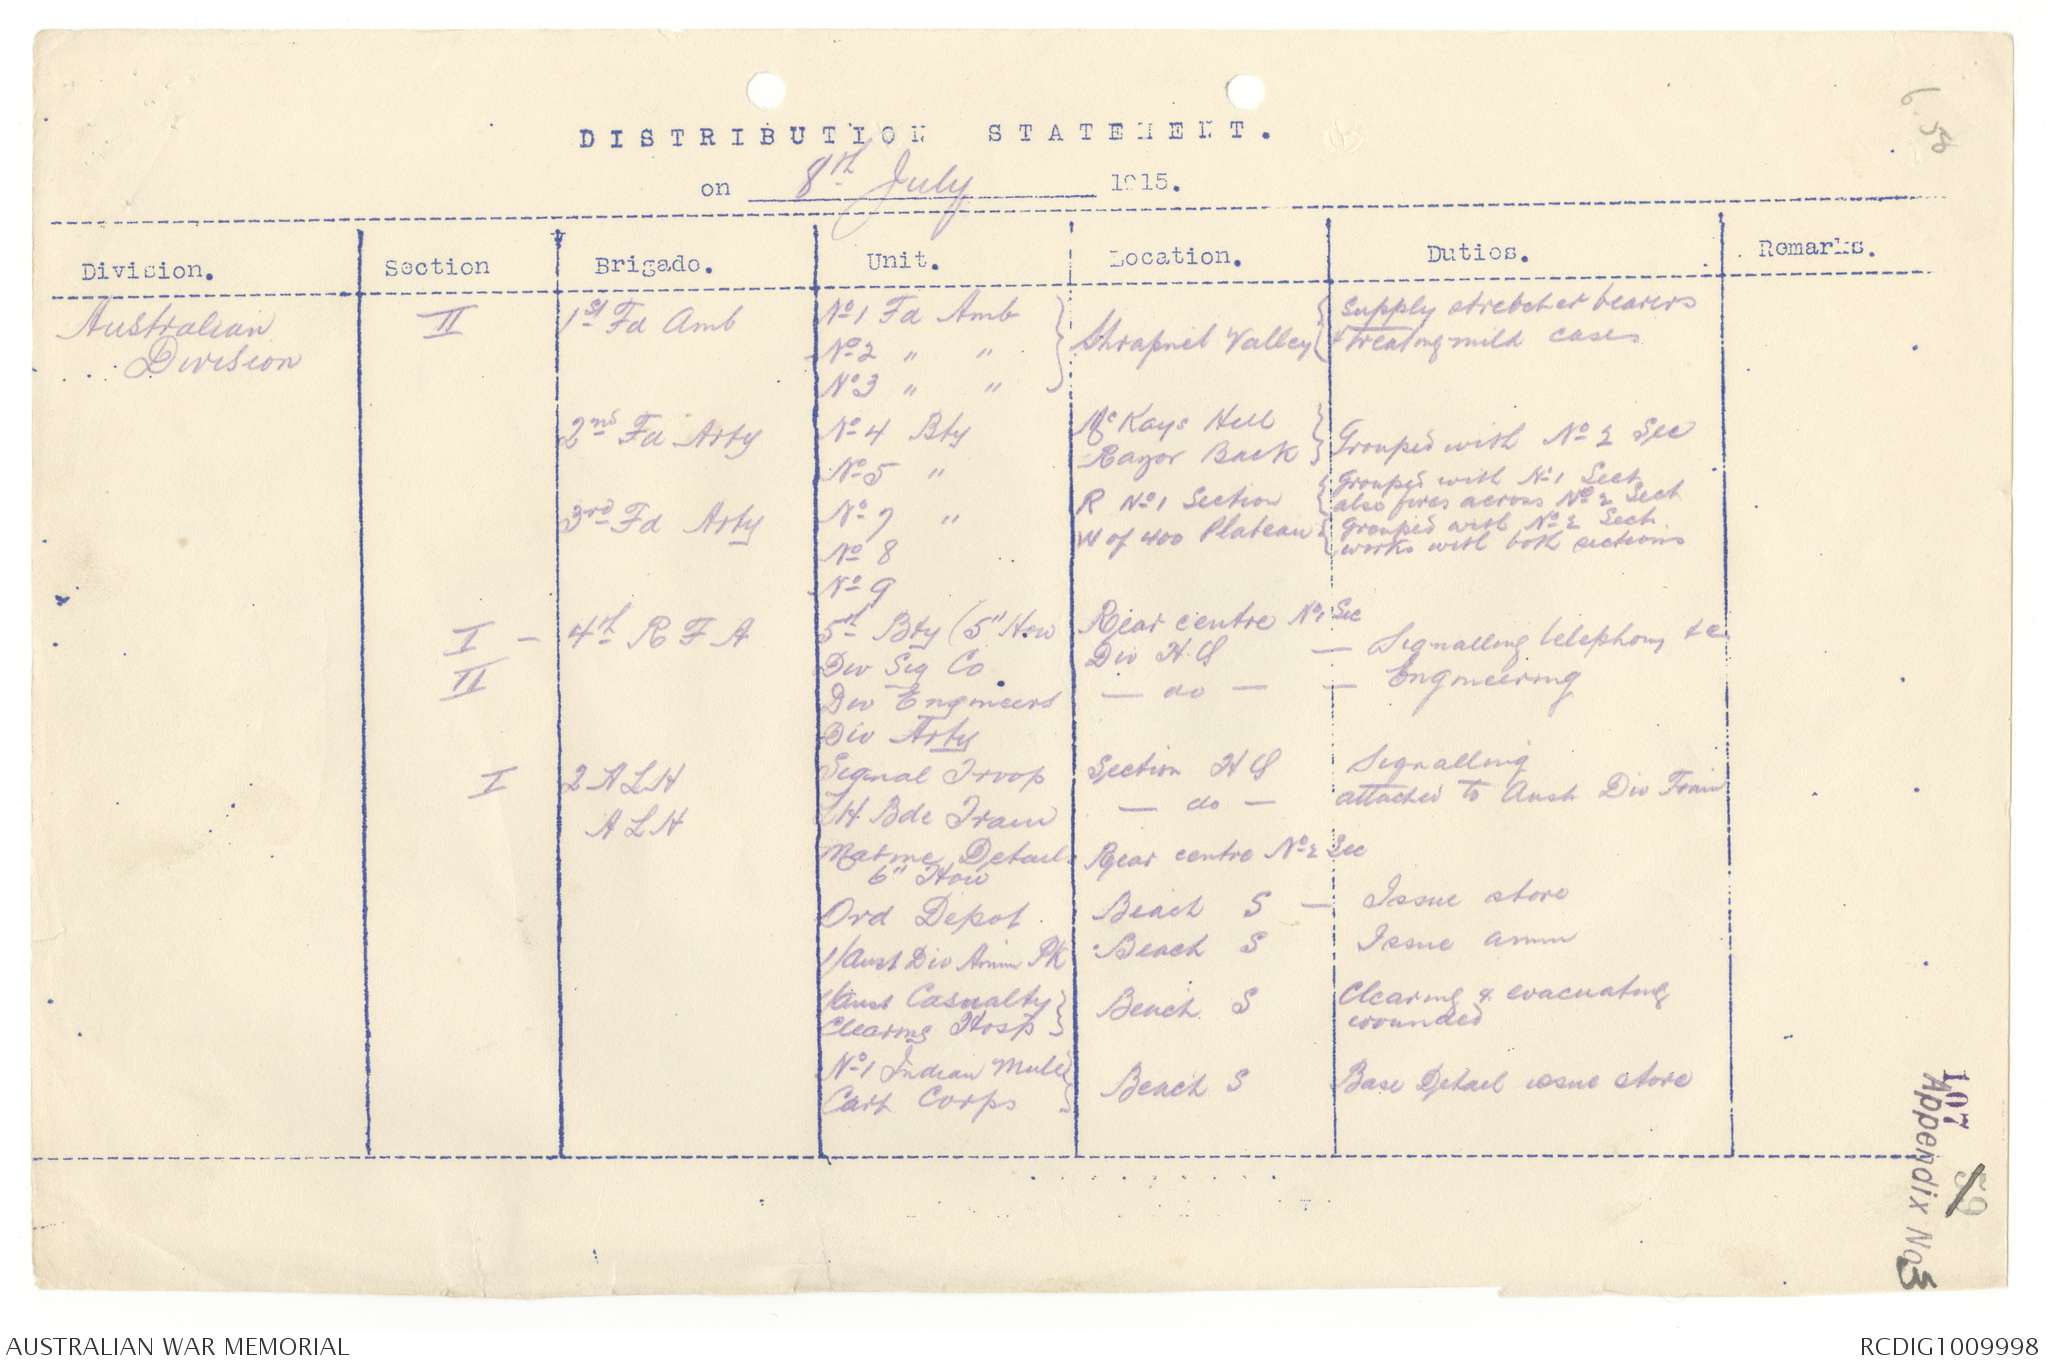 6. 58
DISTRIBUTION STATEMENT.
on 8th July 1915.
Division. Section Brigade. Unit. Location. Duties. Remarks.
Australian Division II 1st Fd Amb No 1 Fd Amb Shrapnel Valley Supply stretcher bearers
No 2 " " & treating mild cases
No 3 " "
2nd Fd Arty No 4 Bty McKays Hill Grouped with No 2 Sec
No 5 " Razor Back
3rd Fd Arty No 7 " R No 1 Section grouped with No 1 Sect
also fires across No 2 Sect
No 8 W of 400 Plateau grouped with No 2 Sect
works with both sections
No 9
I - 4th R F A 5th Bty (5" How Rear centre No 1 Sec
II Div Sig Co Div H.Q - Signalling telephony &c
Div Engineers - do - - Engineering
Div Arty
I 2 A L H Signal Troop Section H Q Signalling
A L H LH Bde Train - do - attached to Aust Div Train
Marine Detail Rear centre No 2 Sec
6" How
Ord Depot Beach S - Issue store
1/Aust Div Amm Pk Beach S Issue amm
1/Aust Casualty Beach S Clearing & evacuating
Clearing Hosp wounded
No 1 Indian Mule Beach S Base Detail issue store
Cart Corps
107
59
Appendix No 3
AUSTRALIAN WAR MEMORIAL
RCDIG1009998